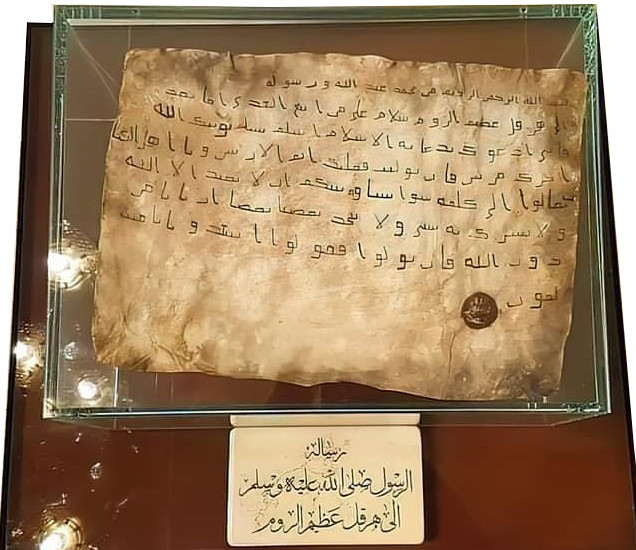 بسم الله الرحمن الرحيم من محمد عبد الله و رسوله
الى هرقل عظيم الروم سلام على من اتبع الهدى اما بعد
فانى ادعوك بدعايه الاسلام اسلم تسلم يوتك الله
اجرك مرتين فان توليت فعليك اثم الاريسين و يا اهل الكتا
ب تعالوا الى كلمه سوا بيننا وبينكم ان لا نعبد الا الله
و لا نشرك به شى و لا يتخذ بعضنا بعضا اربابا من
دون الله فان تولوا فقولوا اشهدوا بانا مسـ
لمون
رسالة
الرسول صلى الله عليه وسلم
الى هرقل عظيم الروم